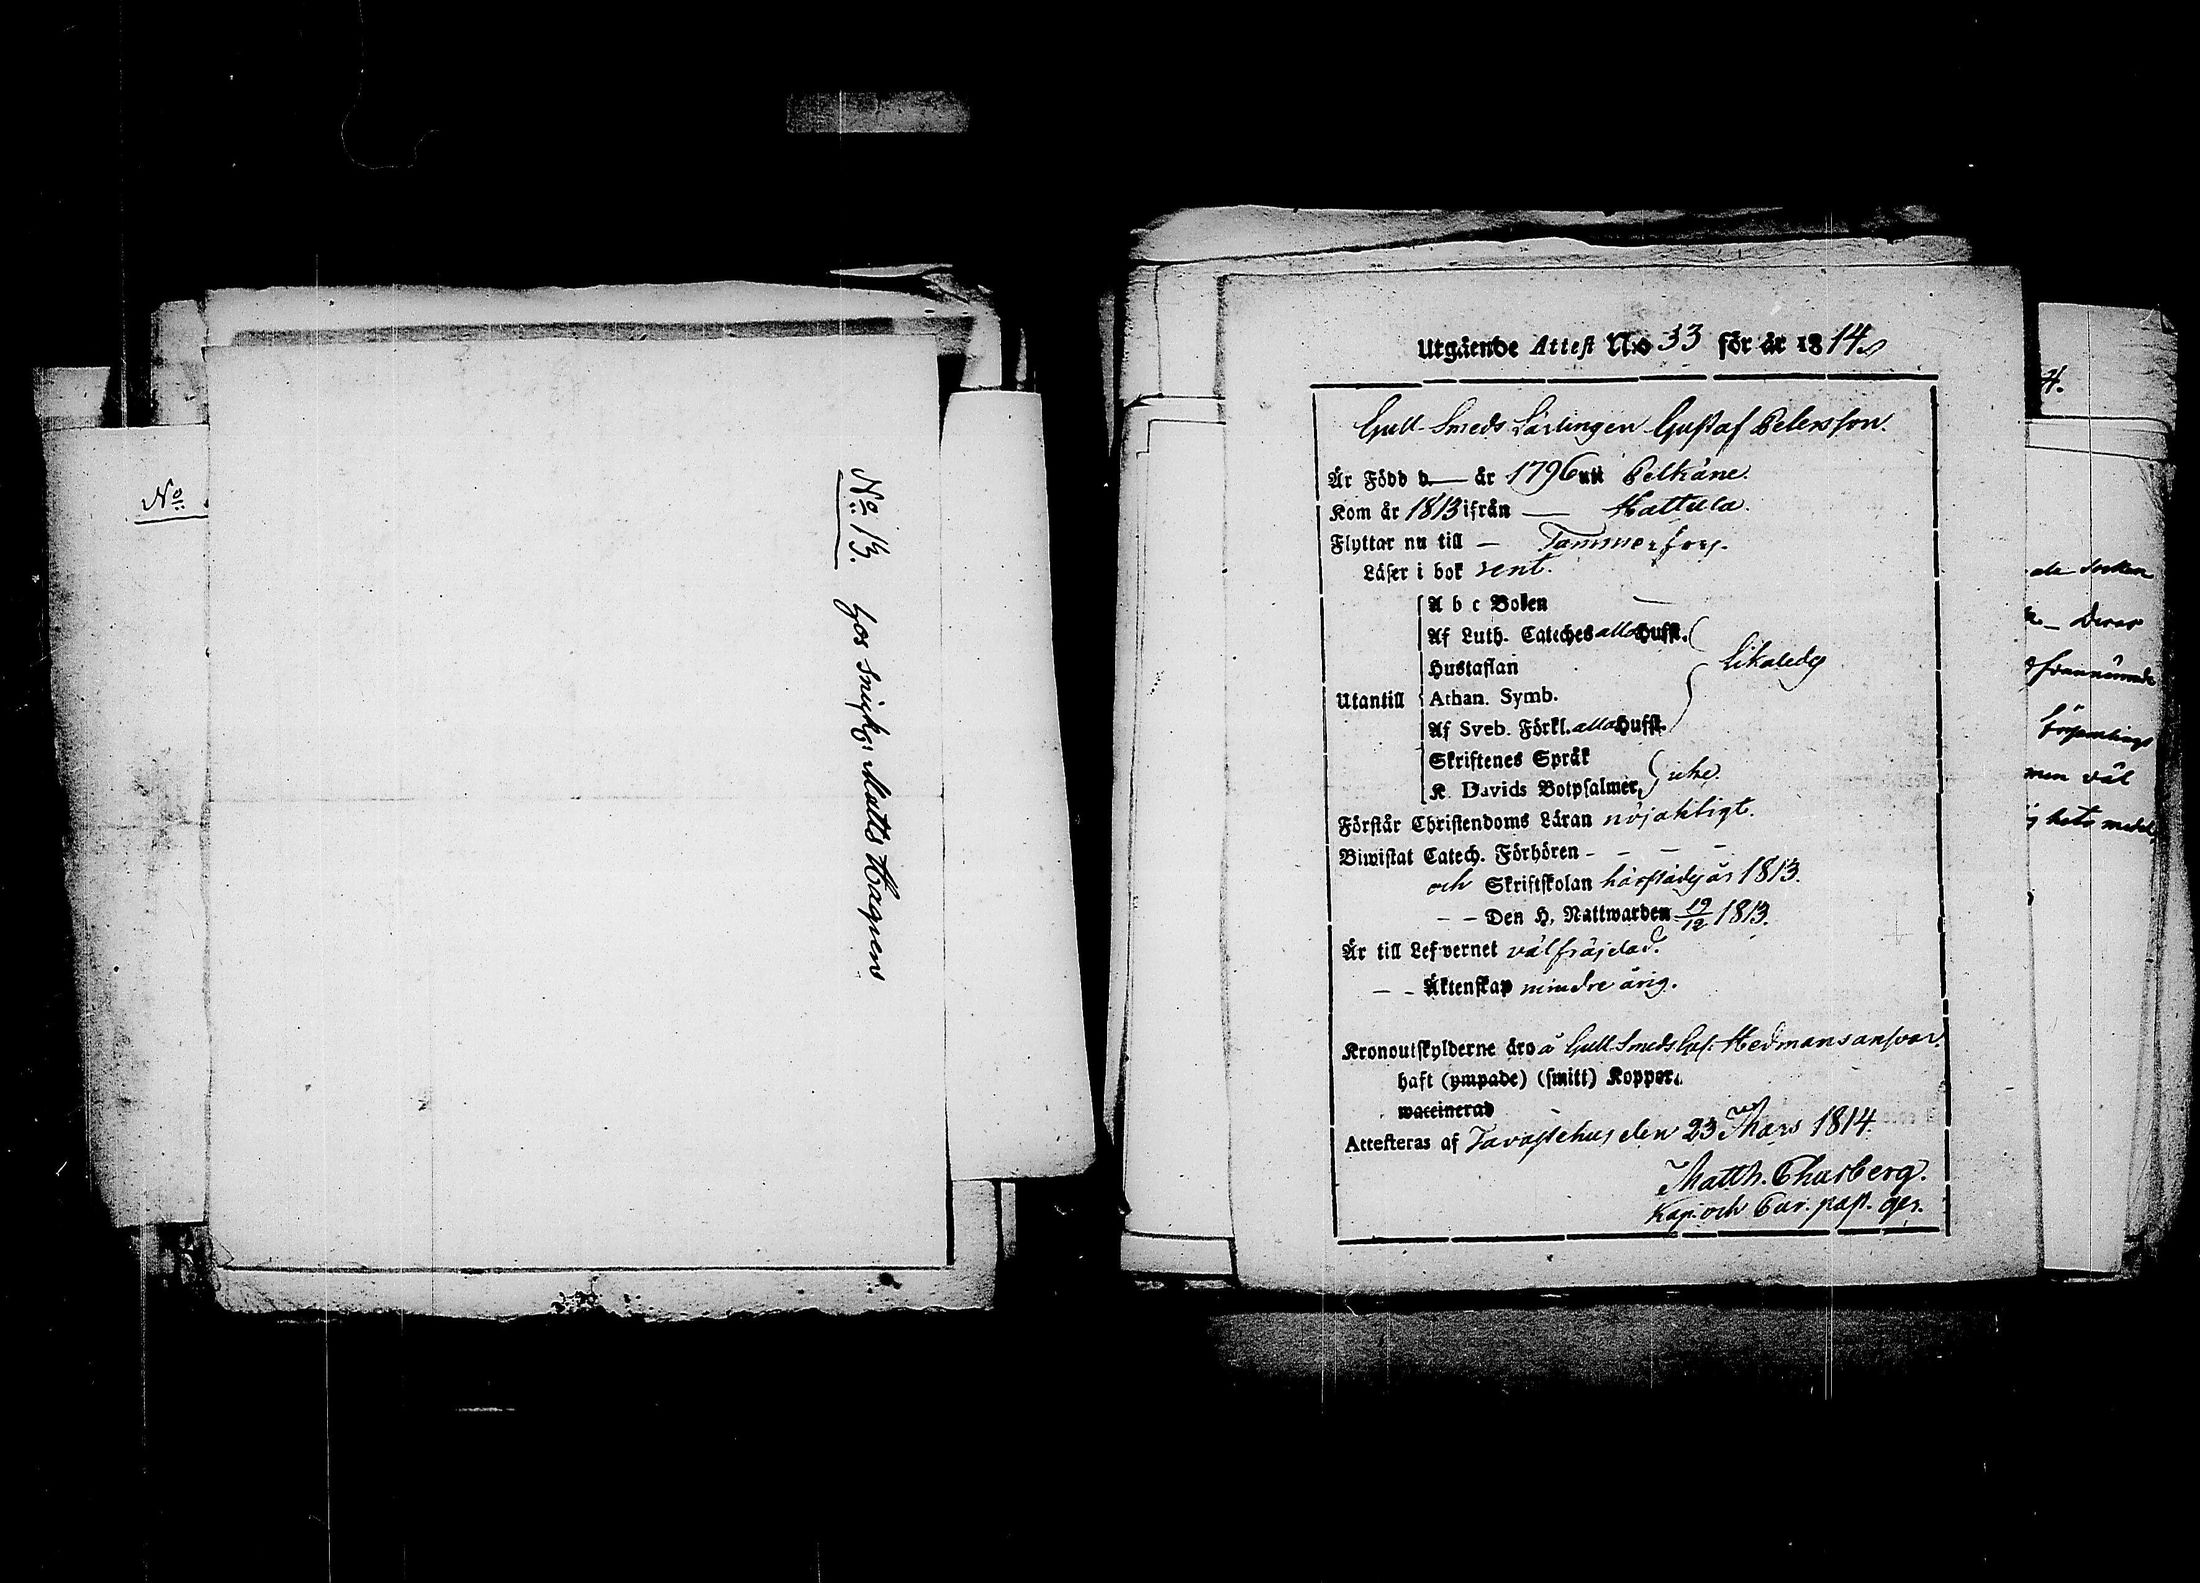 No
No 13. hos Snick. Matts Hagrens
Utgående Attest N:o 33 för år 1814.
Gull-Smeds Lärlingen Gustaf Petersson.
Är Född d. — år 1796 uti Pelkäne.
Kom år 1813 ifrån — Hattula.
Flyttar nu till — Tammerfors.
Läser i bok rent.
A b c Boken —
Af Luth. Cateches alla Hufst.
Hustaflan
likaledes
Utantill
Athan. Symb.
Af Sveb. Förkl. alla Hufst.
Skriftenes Språk
K. Davids Botpsalmer, icke.
Förstår Christendoms Läran nöjaktigt.
Biwistat Catech. Förhören - - - - -
och Skriftskolan härstädes år 1813.
- - Den H. Nattwarden 19/12 1813.
Är till Lefvernet välfräjdad.
- - Äktenskap minderårig.
Kronoutskylderne äro å Gull-Smeds Hedmans ansvar.
haft (ympade) (smitt) Koppor.
waccinerad
Attesteras af Tavastehus den 23 Mars 1814.
Matth. Churberg.
Kap. och Cur. past. ger.
4.
de socken
deras
församlings
men väl